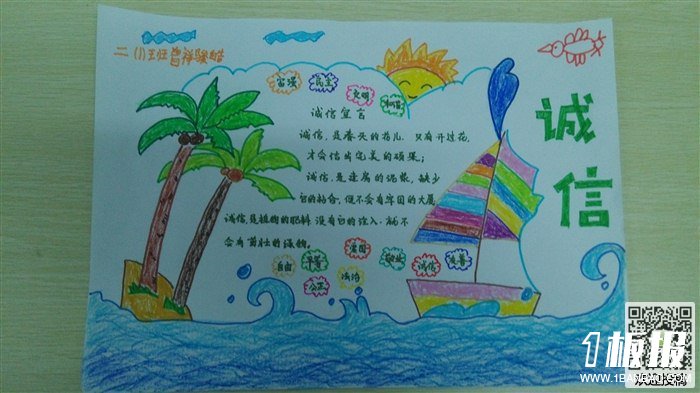 二(1)班
诚信
富强 民主
文明 和谐
诚信宣言
诚信,是春天的花儿,只有开过花,
才会结出完美的硕果;
诚信,是建房的泥浆,缺少
它的粘合,便不会有牢固的大厦
诚信,是植物的肥料,没有它的注入,就不
会有茁壮的
自由 平等 爱国 敬业 诚信 友善
公正 法治
1板报
WWW.1BANBAO.COM